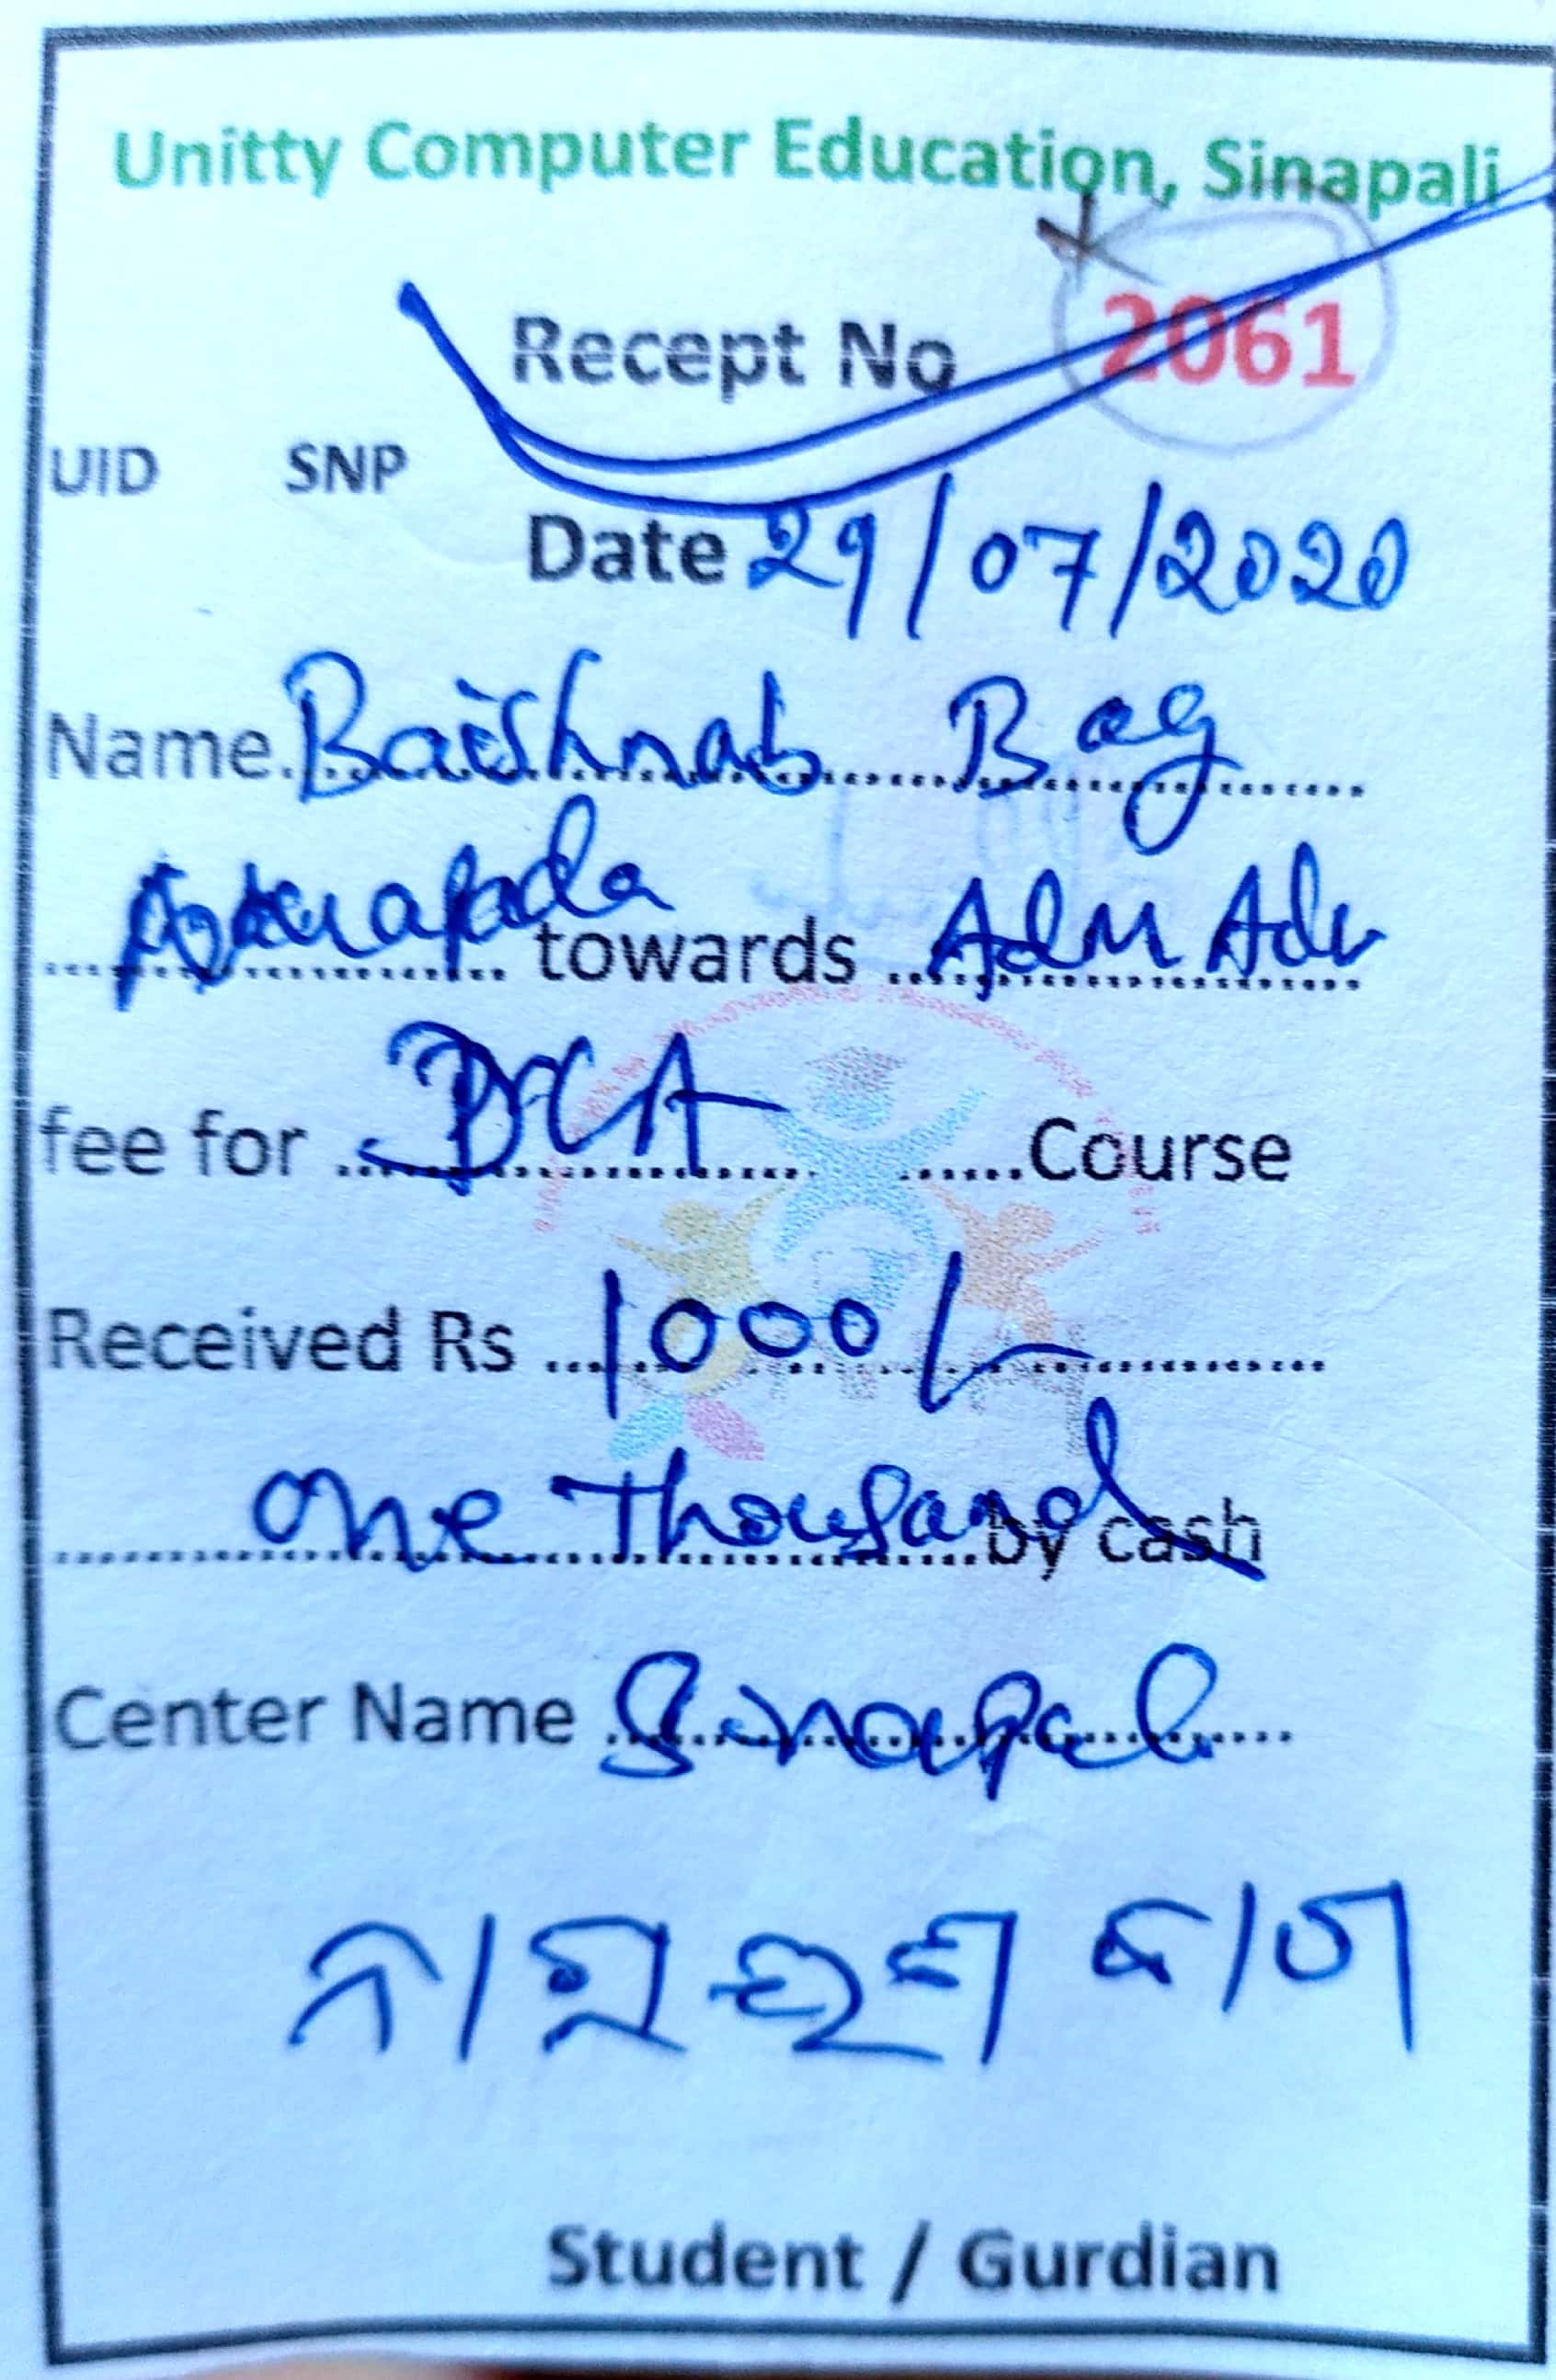 Unitty Computer Education, Sinapali
Recept No 2061
UID SNP
Date 29/07/2020
Name Baishnab Bag
towards Adm Adv
fee for DCA Course
Received Rs 1000/-
one Thousand by cash
Center Name Sinapali
ନାରାୟଣ ବାଗ
Student / Gurdian